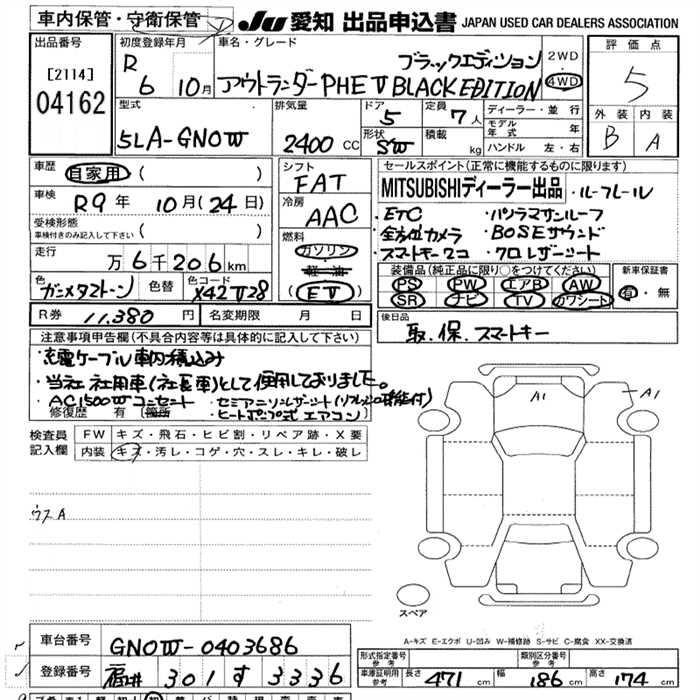 車内保管・守衛保管
JU 愛知 出品申込書 JAPAN USED CAR DEALERS ASSOCIATION
出品番号
[2114]
04162
初度登録年月
R 6 10月
車名・グレード
ブラックエディション
アウトランダーPHEV BLACK EDITION
2WD
4WD
評価点
5
外装 内装
B A
型式
5LA-GN0W
排気量
2400 CC
ドア
5
形状
SW
定員
7人
積載
kg
ディーラー・並行
モデル年式 年
ハンドル 左・右
車歴
自家用 ( )
車検
R9年 10月(24日)
受検形態
車検付きのみ記入して下さい ( )
走行
万 6千206 km
色
ガンメタストーン
色替
色コード
X42 V28
シフト
FAT
冷房
AAC
燃料
ガソリン
軽油
(EV)
セールスポイント(正常に機能するものに限ります)
MITSUBISHIディーラー出品 ・ルーフレール
・ETC ・パノラマサンルーフ
・全方位カメラ ・BOSEサウンド
・スマートキー2コ ・クロレザーシート
装備品(純正品に限り○をつけてください)
PS PW エアB AW
SR ナビ TV カワシート
新車保証書
有・無
R券 11,380 円
名変期限 月 日
後日品
取.保.スマートキー
注意事項申告欄(不具合内容等は具体的に記入して下さい)
・充電ケーブル車内積込み
・当社社用車(社長車)として使用しておりました。
・AC1500Wコンセント ・セミアニリンレザーシート(リフレッシュ機能付)
修復歴 有(箇所) ・ヒートポンプ式エアコン)
検査員記入欄
FW キズ・飛石・ヒビ割・リペア跡・X要
内装 キズ・汚レ・コゲ・穴・スレ・キレ・破レ
ウスA
A1
A1
スペア
A-キズ E-エクボ U-凹み W-補修跡 S-サビ C-腐食 XX-交換済
車台番号 GN0W-0403686
登録番号 福井 301 す 3336
形式指定番号 参考
類別区分番号 参考
車庫証明用 参考 長さ 471 cm 幅 186 cm 高さ 174 cm